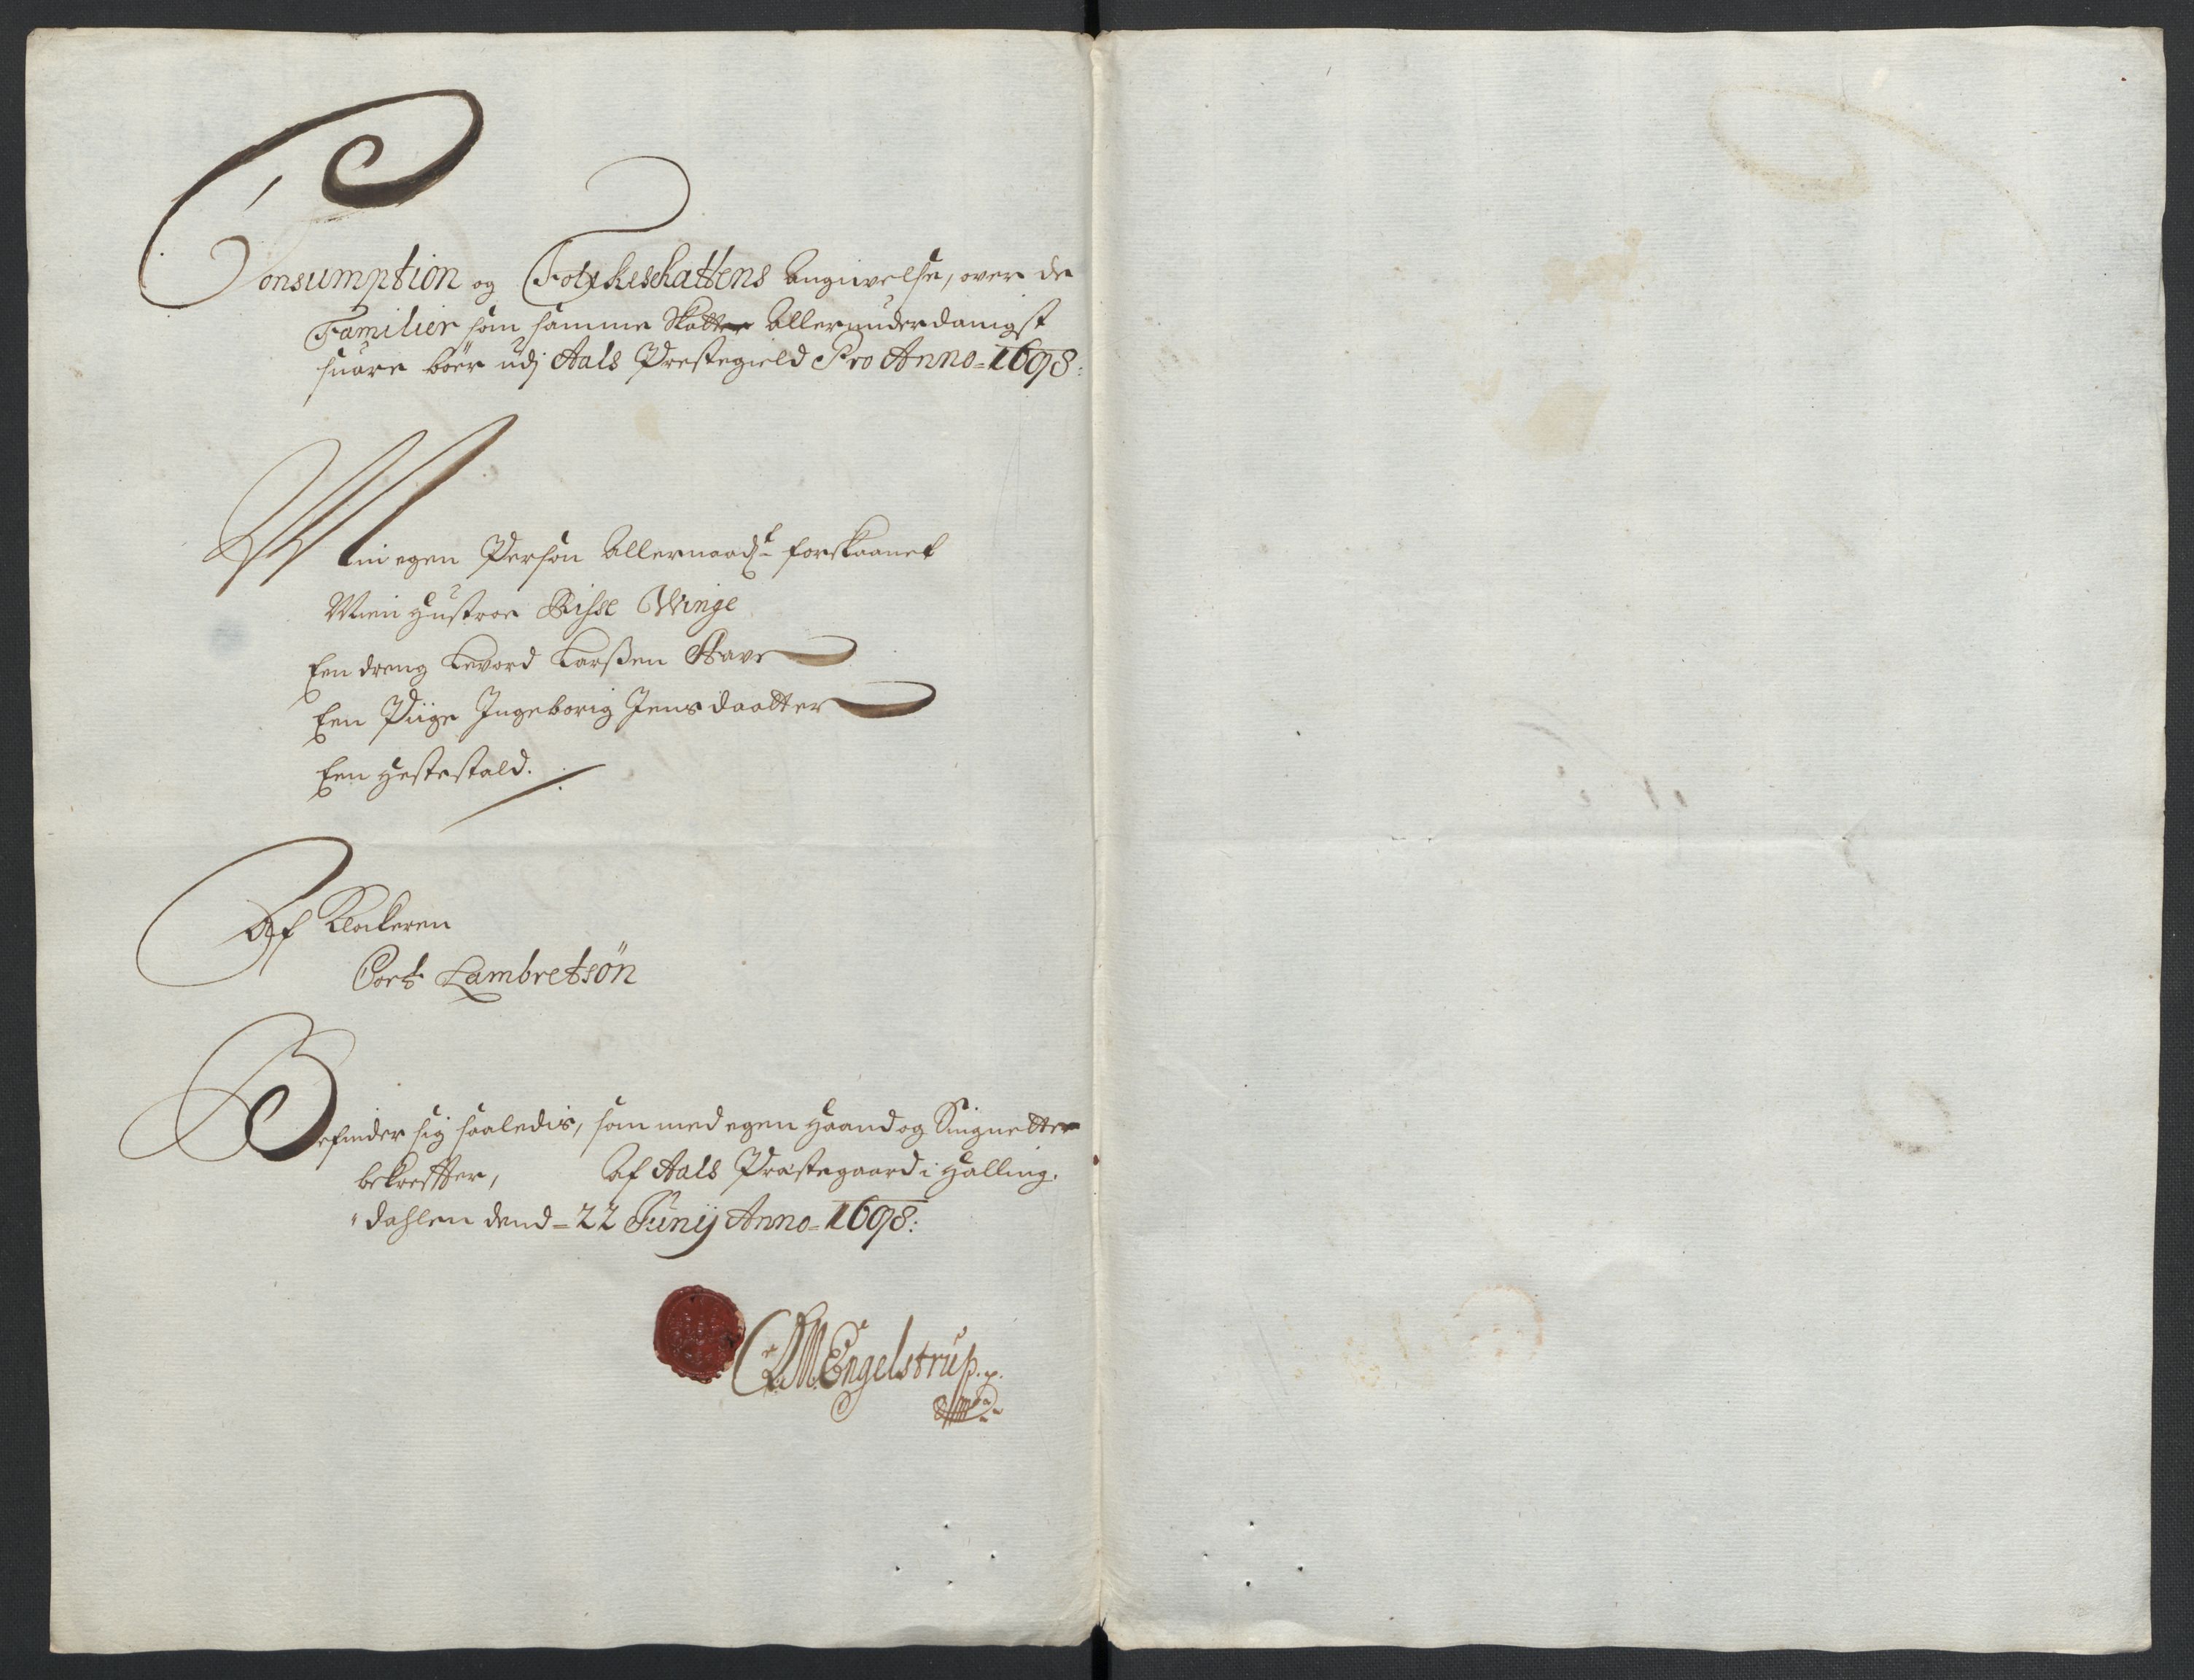 Consumption og Folcheschattens Angiivelse, over de
Familier som samme Skatter Allerunderdanigst
suare böer udj Aals Prestegield Pro Anno = 1698:
Min egen Person Allernaadst forskaanet
Mein Hustroe Sisse Winge
Een dreng Levord Larßen
Een Piige Ingeborig Jensdaatter
Een Hestestald.
Af Klockeren
Cort Lambretsön
Befinder sig saaledis, som med egen Haand og Singnetter
bekreffter, Af Aals Præstegaard i Halling,
"dahlen dend = 22 Junij Anno = 1698:
Engelstrup